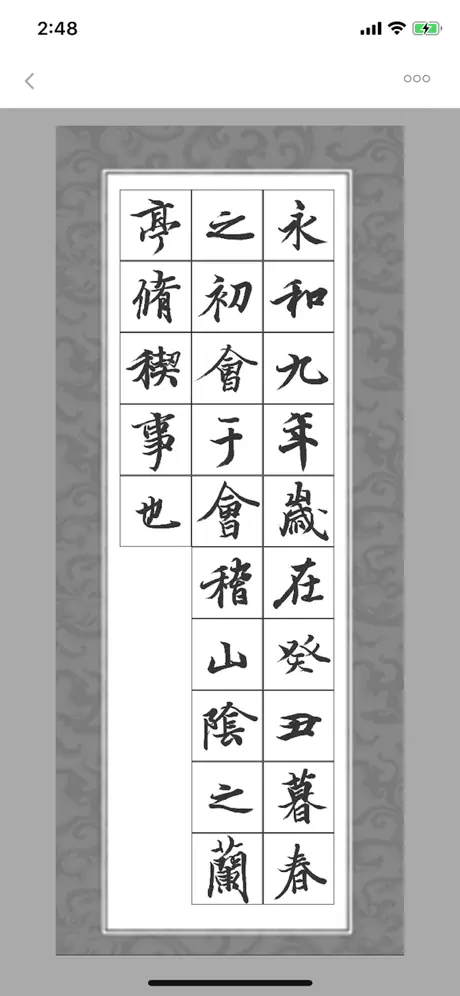 2:48
永和九年歲在癸丑暮春
之初會于會稽山陰之蘭
亭脩稧事也